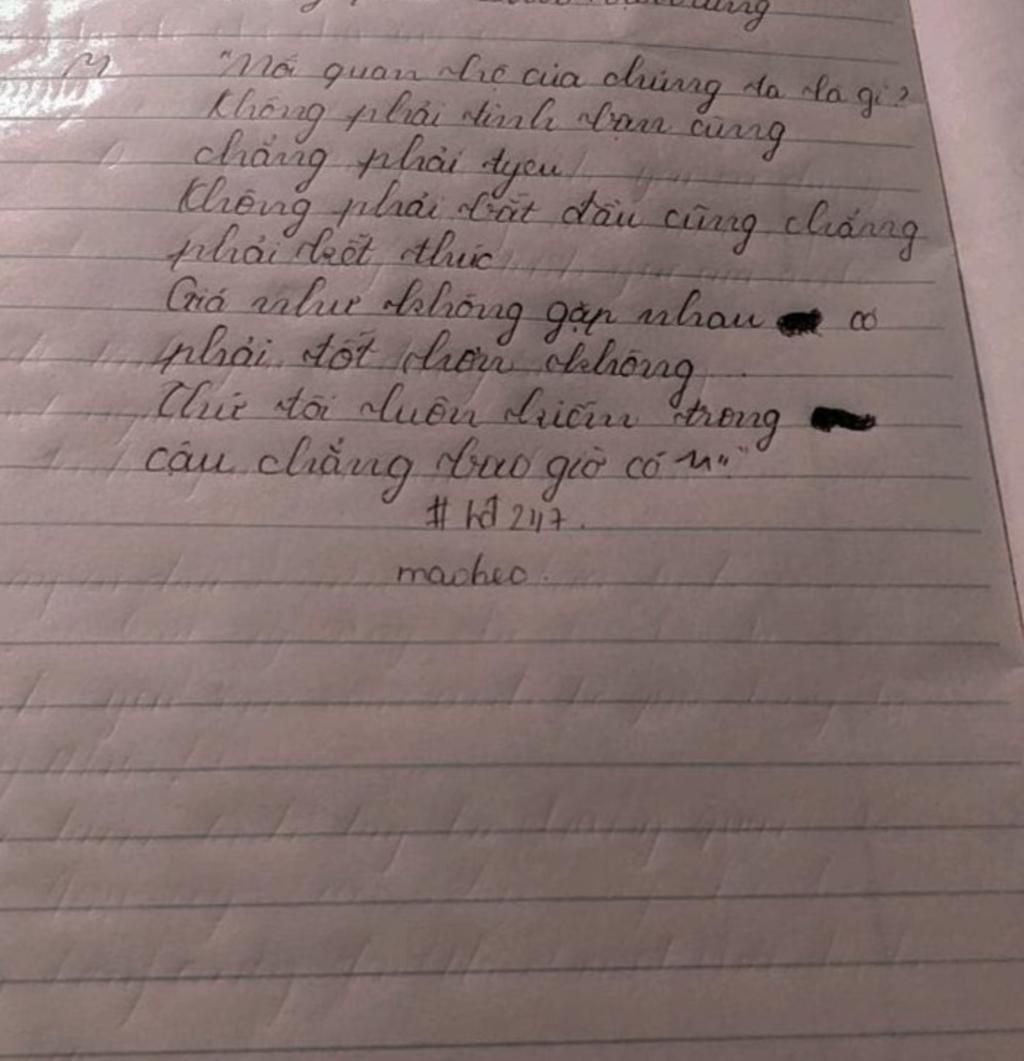 dùng
"Mối quan hệ của chúng ta là gì?
Không phải tình bạn cũng
chẳng phải tyêu
Không phải bắt đầu cũng chẳng
phải kết thúc
Giá như không gặp nhau có
phải tốt hơn không
Thứ tôi luôn kiếm trong
cậu chẳng bao giờ có"
macheo.